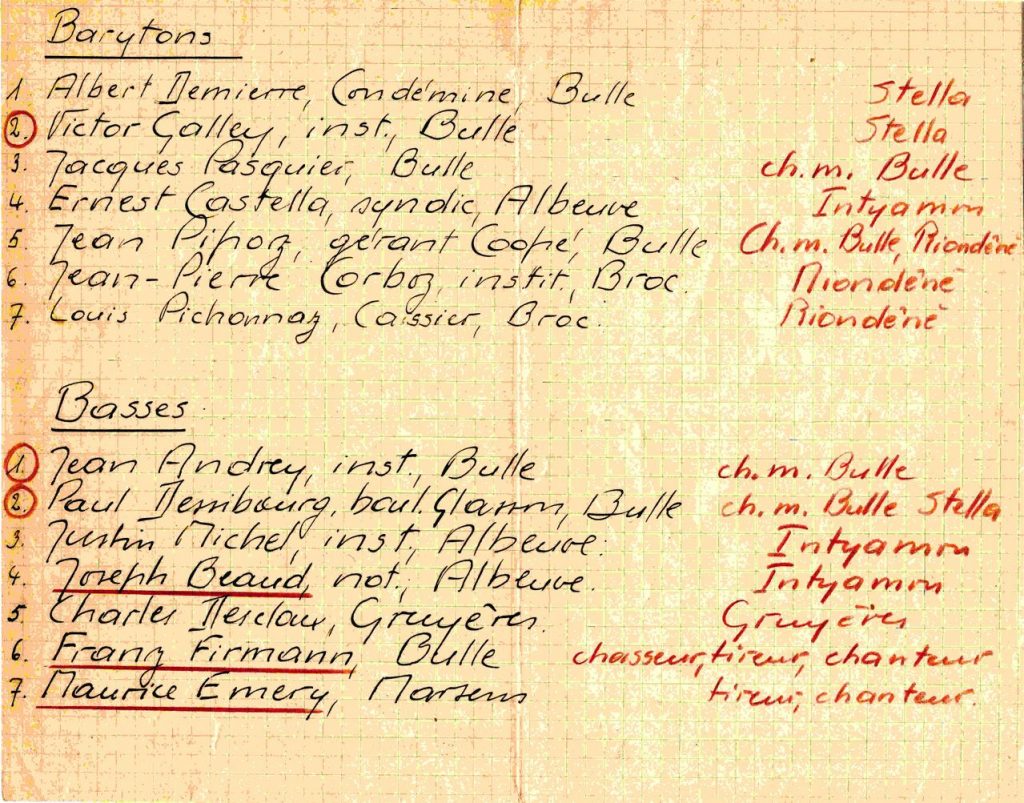 Barytons
1. Albert Demierre, Condémine, Bulle Stella
2. Victor Galley, inst., Bulle Stella
3. Jacques Pasquier, Bulle ch.m. Bulle
4. Ernest Castella, syndic, Albeuve Intyamon
5. Jean Piporz, gérant Coopé, Bulle Ch.m. Bulle, Riondênê
6. Jean-Pierre Corboz, instit., Broc. Riondênê
7. Louis Pichonnaz, Caissier, Broc. Riondênê
Basses
1. Jean Andrey, inst., Bulle ch.m. Bulle
2. Paul Dessibourg, boul. Glasson, Bulle ch.m. Bulle Stella
3. Justin Michel, inst., Albeuve. Intyamon
4. Joseph Beaud, not., Albeuve. Intyamon
5. Charles Descloux, Gruyères. Gruyères
6. Franz Firmann, Bulle chasseur, tireur, chanteur
7. Maurice Emery, Marsens tireur, chanteur.